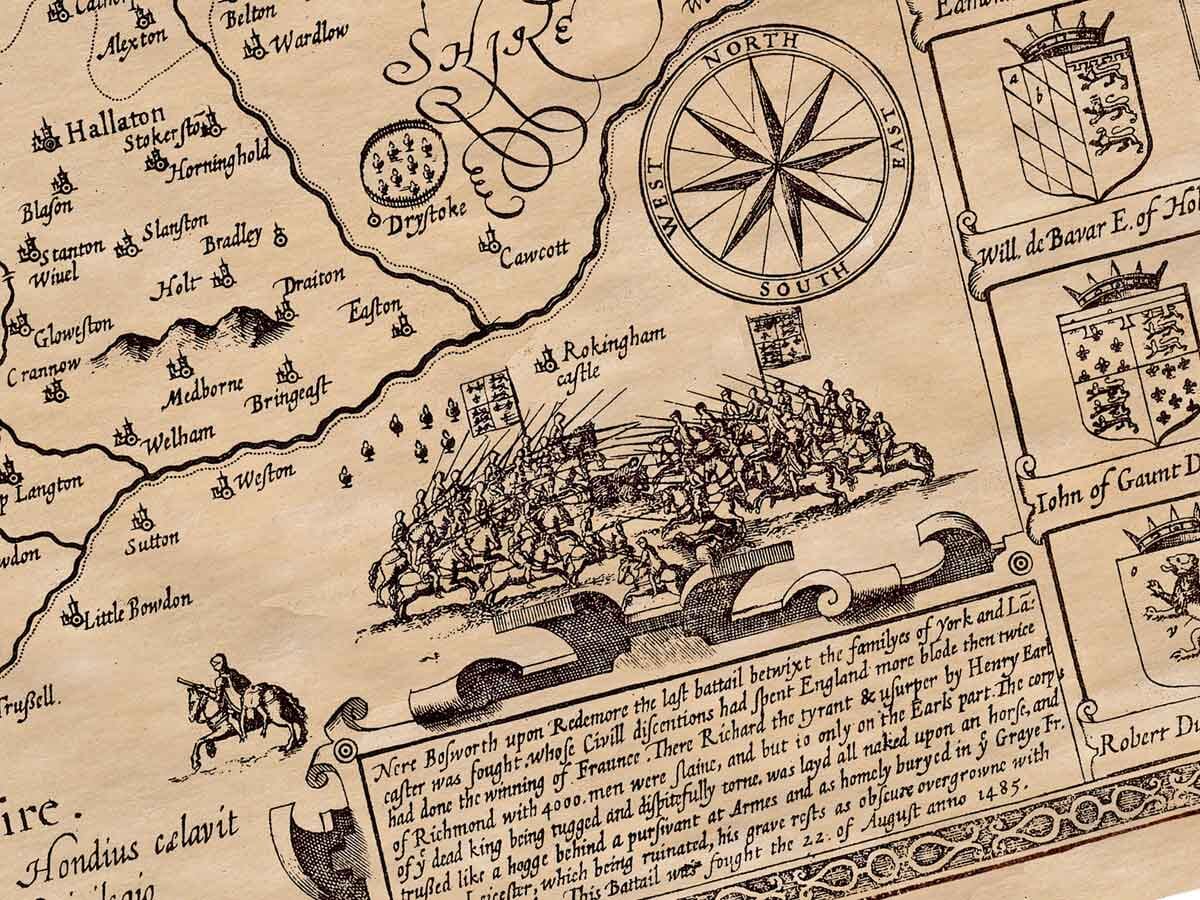 Alexton
Belton
Wardlow
SHIRE
Hallaton
Stokersto
Horninghold
Blason
Drystoke
Slanston
Stanton
Wiuel
Bradley
Cawcott
Holt
Draiton
Easton
Gloweston
Crannow
Medborne
Bringeast
Rokingham
castle
Welham
Weston
Langton
Sutton
wdon
Little Bowdon
Trussell.
NORTH
EAST
SOUTH
WEST
a
b
Will. de Bavar E. of Hol
Iohn of Gaunt D
Robert Du
ire.
Hondius cælavit
Nere Bosworth upon Redemore the last battail betwixt the familyes of York and Lā:
caster was fought, whose Civill discentions had spent England more blode then twice
had done the winning of Fraunce. There Richard the tyrant & usurper by Henry Earl
of Richmond with 4000. men were slaine, and but 10 only on the Earls part. The corps
of ẙ dead king being tugged and dispitefully torne, was layd all naked upon an horse, and
trussed like a hogge behind a pursivant at Armes and as homely buryed in ẙ Graye Fr.
Leicester, which being ruinated, his grave rests as obscure overgrowne with
This Battail was fought the 22. of August anno 1485.